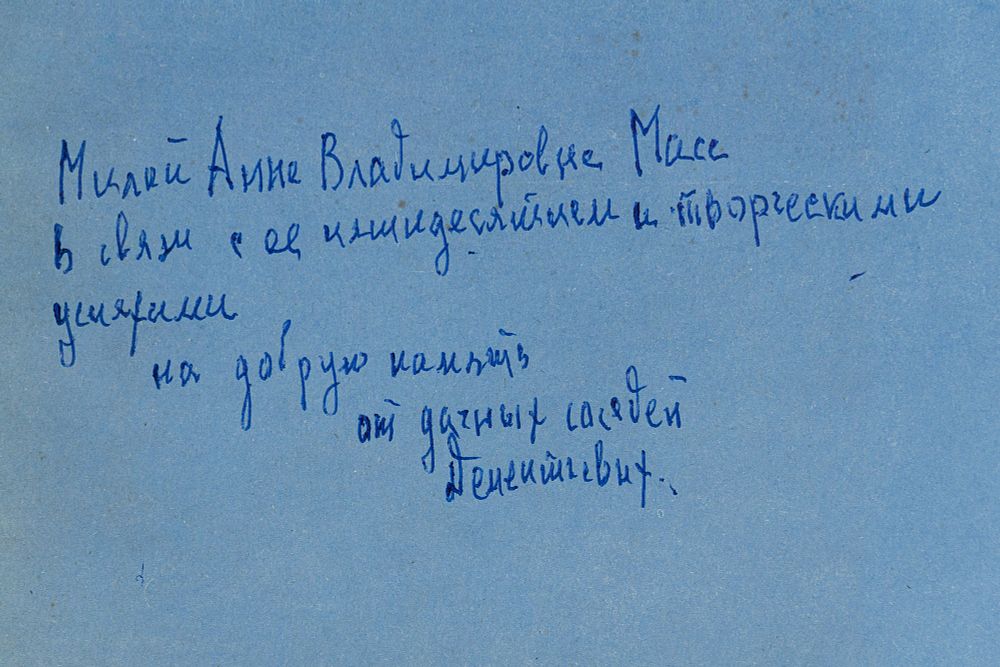 Милой Анне Владимировне Масс
в связи с ее шестидесятилетием и творческими
успехами
на добрую память
от дачных соседей